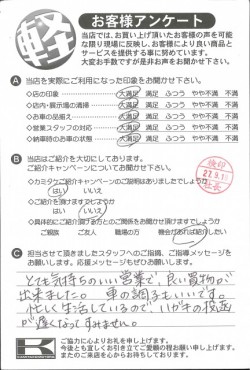 軽
お客様アンケート
当店では、お買い上げ頂いたお客様の声を可能
な限り現場に反映し、お客様により良い商品と
サービスを提供する事に努めています。
大変お手数ですが是非お声をお聞かせ下さい。
A 当店を実際にご利用になった印象をお聞かせ下さい。
◇店の印象 大満足 満足 ふつう やや不満 不満
◇店内・展示場の清掃 大満足 満足 ふつう やや不満 不満
◇お車の品揃え 大満足 満足 ふつう やや不満 不満
◇営業スタッフの対応 大満足 満足 ふつう やや不満 不満
◇納車時のお車の状態 大満足 満足 ふつう やや不満 不満
B 当店はご紹介を大切にしております。
ご紹介キャンペーンについてお聞かせ下さい。
◇カミタケご紹介キャンペーンのご説明はありましたでしょうか
はい いいえ
◇ご紹介を頂けますでしょうか
はい いいえ
◇具体的にご紹介頂ける方とのご関係をお聞かせ頂けますでしょうか
ご親族 ご友人 職場の方 機会があれば紹介したい
27.9.
社長
C 担当させて頂きましたスタッフへのご指摘、ご指導メッセージを
お願いします。応援メッセージもぜひお願いします。
とても気持ちのいい営業で、良い買物が
出来ました。車の調子もいいです。
忙しく生活しているので、いがきの投函
が遅くなってすみません。
K
ご協力に心よりお礼を申し上げます。
今後とも宜しくお引き立てご愛顧の程お願い申し上げます。
またのご来店を心からお待ちしております。